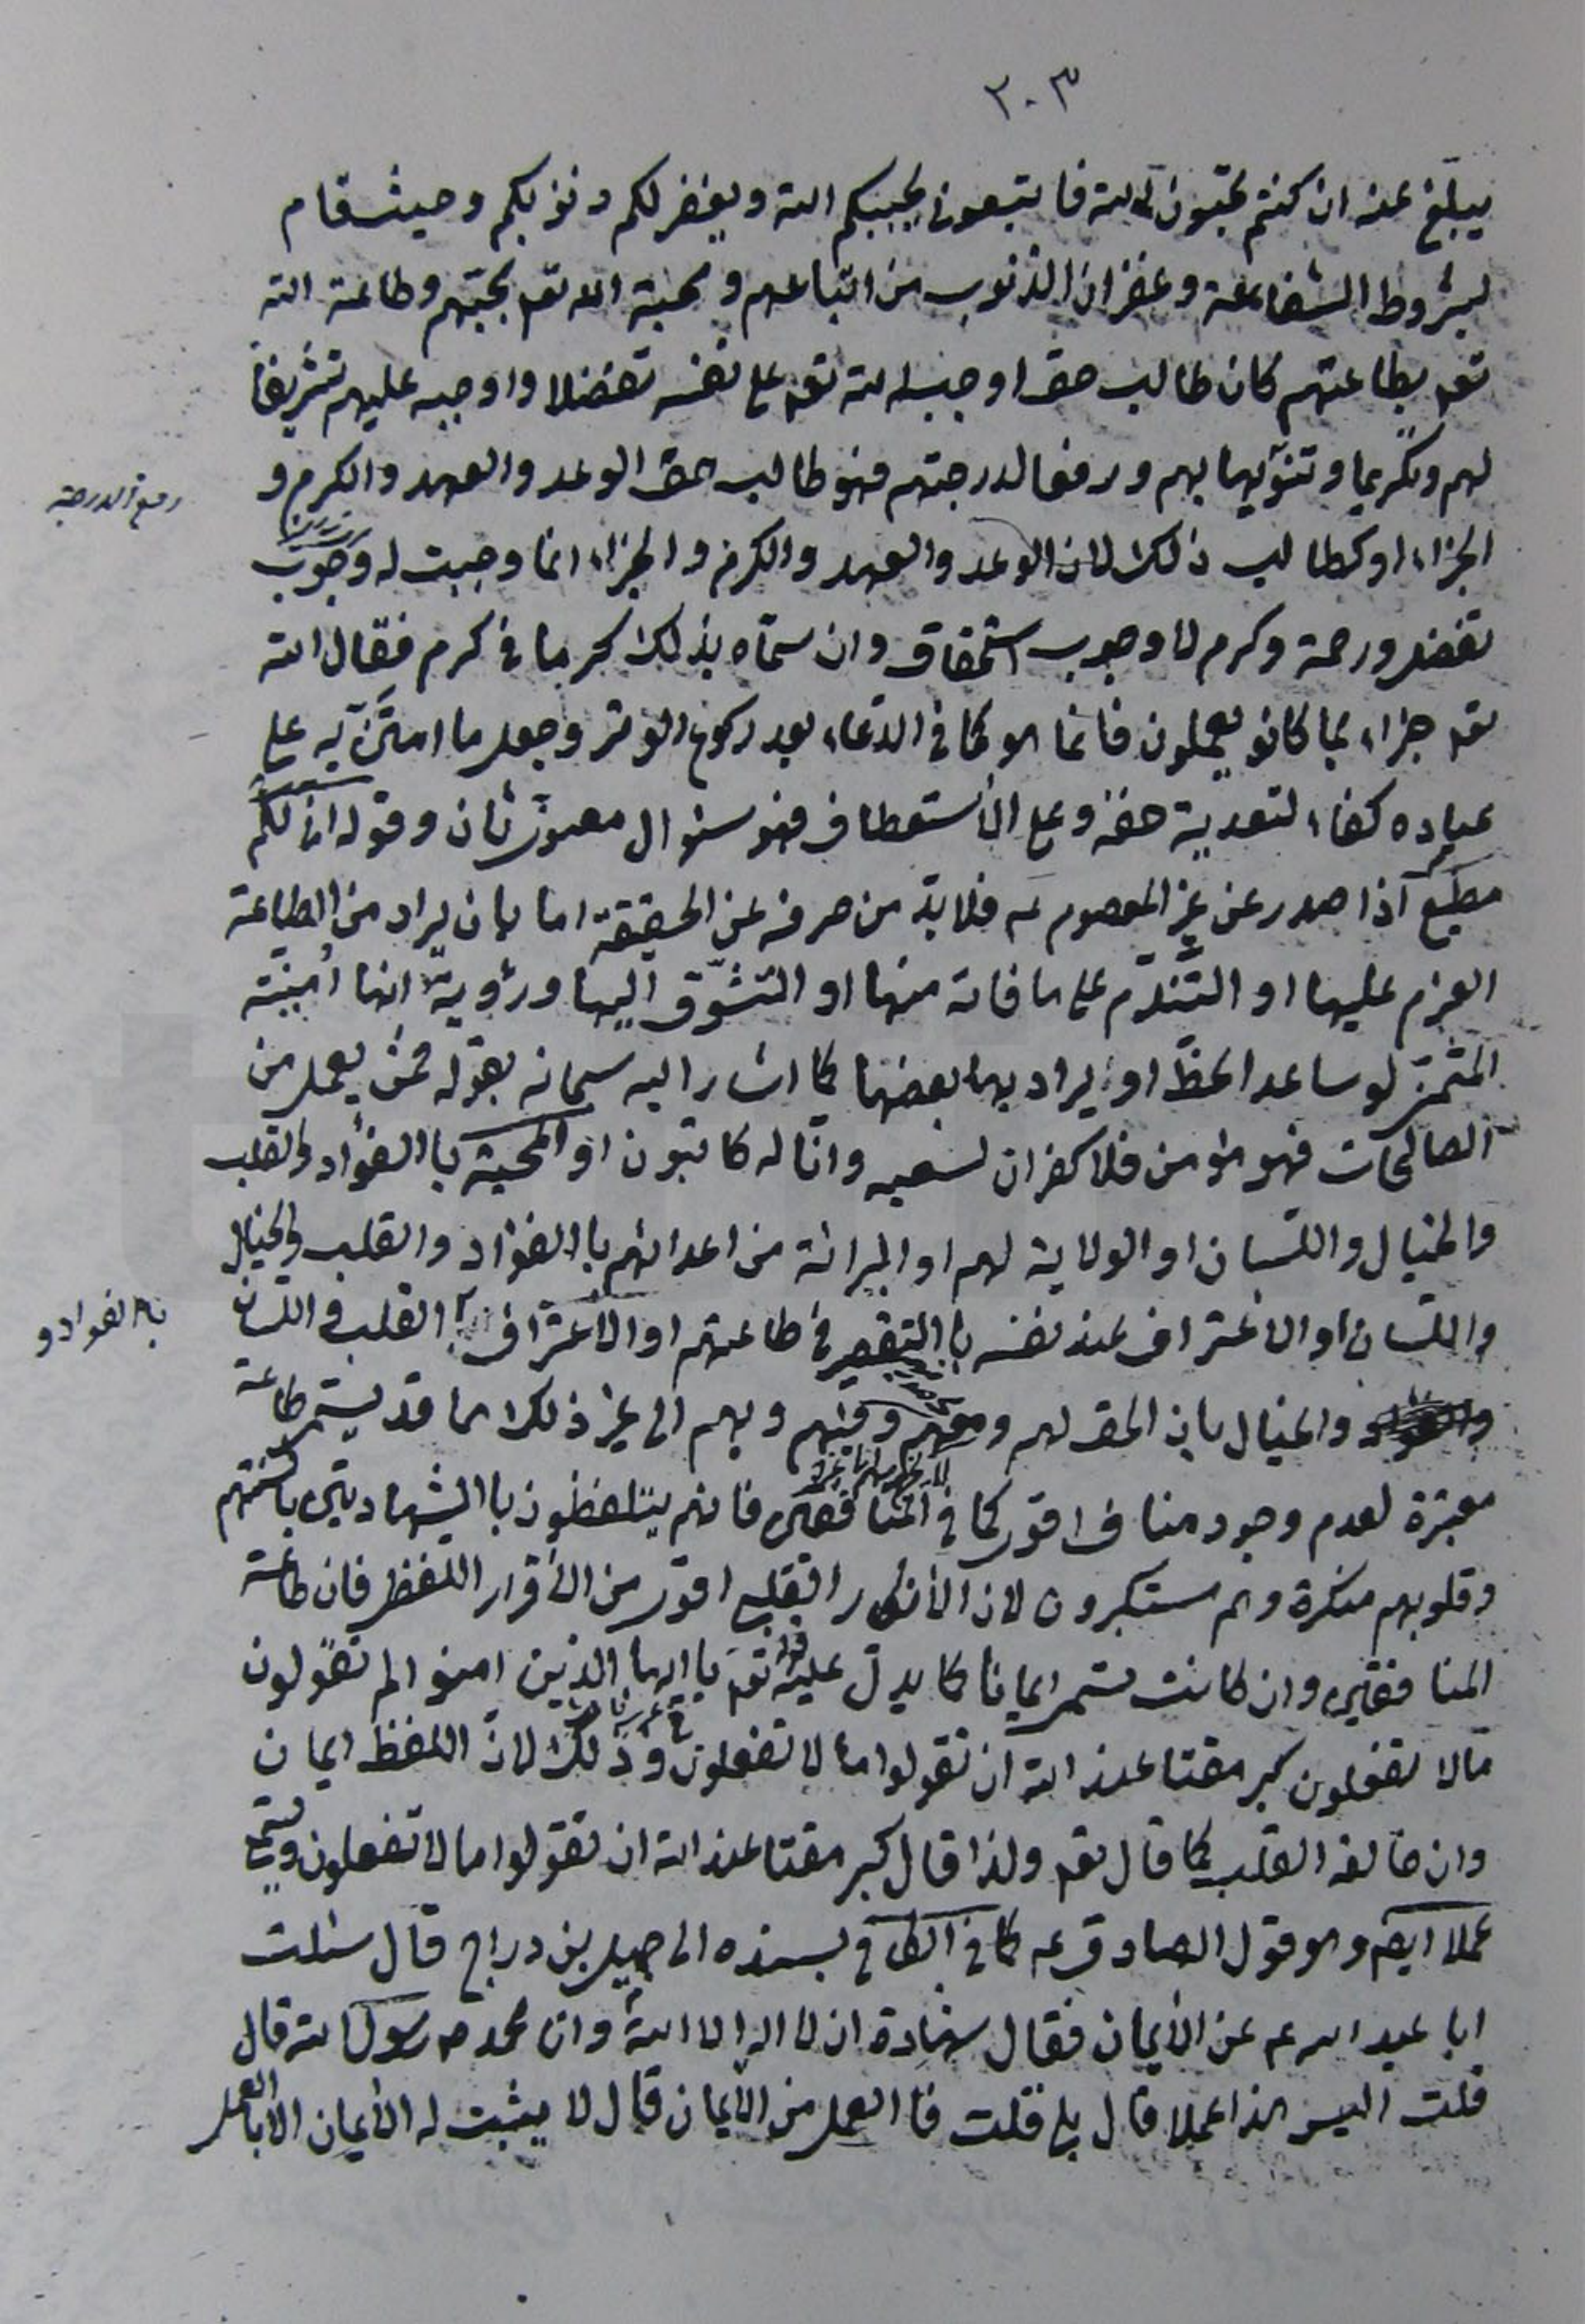 ٣٠٣
يبلّغ عنه ان كنتم تحبّون الله فاتبعوني يحببكم الله ويغفر لكم ذنوبكم وحيث قام
بشروط الشفاعة وغفران الذنوب من اتباعهم ومحبة الله تعه بمحبّتهم وطاعة الله
تعه بطاعتهم كان طالب حق اوجبه الله تعه على نفسه تفضلا واوجبه عليهم تشريفا
لهم وتكريما وتنويها بهم ورفعا لدرجتهم فهو طالب حق الوعد والعهد والكرم و
رفع الدرجة
الجزاء او كطالب ذلك لان الوعد والعهد والكرم والجزاء انما وجبت له وجوب
تفضل ورحمة وكرم لا وجوب استحقاق وان سمّاه بذلك كرما في كرم فقال الله
تعه جزاء بما كانو يعملون فانما هو كما في الدعاء بعد ركوع الوتر وجعل ما امتنّ به على
عباده كفاء لتعدية حقه وعلى الأستعطاف فهو سئوال معبون ثان وقوله اني لكم
مطيع اذا صدر عن غير المعصوم عه فلا بدّ من صرفه عن الحقيقة اما بان يراد من الطاعة
العزم عليها او التندّم على ما فاته منها او التشوّق اليها ورؤية انها امنيّته
المتمنى لو ساعد الحظّ او يراد بها بعضها كما اشار اليه سبحانه بقوله فمن يعمل من
الصالحات فهو مؤمن فلا كفران لسعيه وانّا له كاتبون او المحبة باالفؤاد والقلب
والخيال واللسان او الولاية لهم او البرائة من اعدائهم باالفؤاد والقلب والخيال
واللسان او الاعتراف عند نفسه باالتقصير في طاعتهم او الاعتراف بالقلب واللسان
باالفواد و
والخيال بان الحق لهم ومعهم وفيهم وبهم الى غير ذلك مما قد يسمّى طاعة
معبرة لعدم وجود مناف اقوى كما في المنافقين فانهم يتلفظون باالشهادتين بالسنتهم
وقلوبهم منكرة وهم مستكبرون لان الأنكار القلبي اقوى من الأقرار اللفظي فان طاعة
المنافقين وان كانت تسمى ايمانا كما يدل عليه قوله تعه يا ايها الذين امنو الم تقولون
مالا تفعلون كبر مقتا عند الله ان تقولوا ما لا تفعلون وذلك لانّ اللفظ ايمان
وان خالفه القلب كما قال تعه ولذا قال كبر مقتا عند الله ان تقولوا ما لا تفعلون ويسمّى
عملا ايضه وهو قول الصادق عه كما في الكافي بسنده الى جميل بن دراج قال سئلت
ابا عبد الله عه عن الأيمان فقال شهادة ان لا اله الا الله وان محمد ص رسول الله قال
قلت اليس هذا عملا قال بلى قلت فا العمل من الأيمان قال لا يثبت له الأيمان الا باالعمل